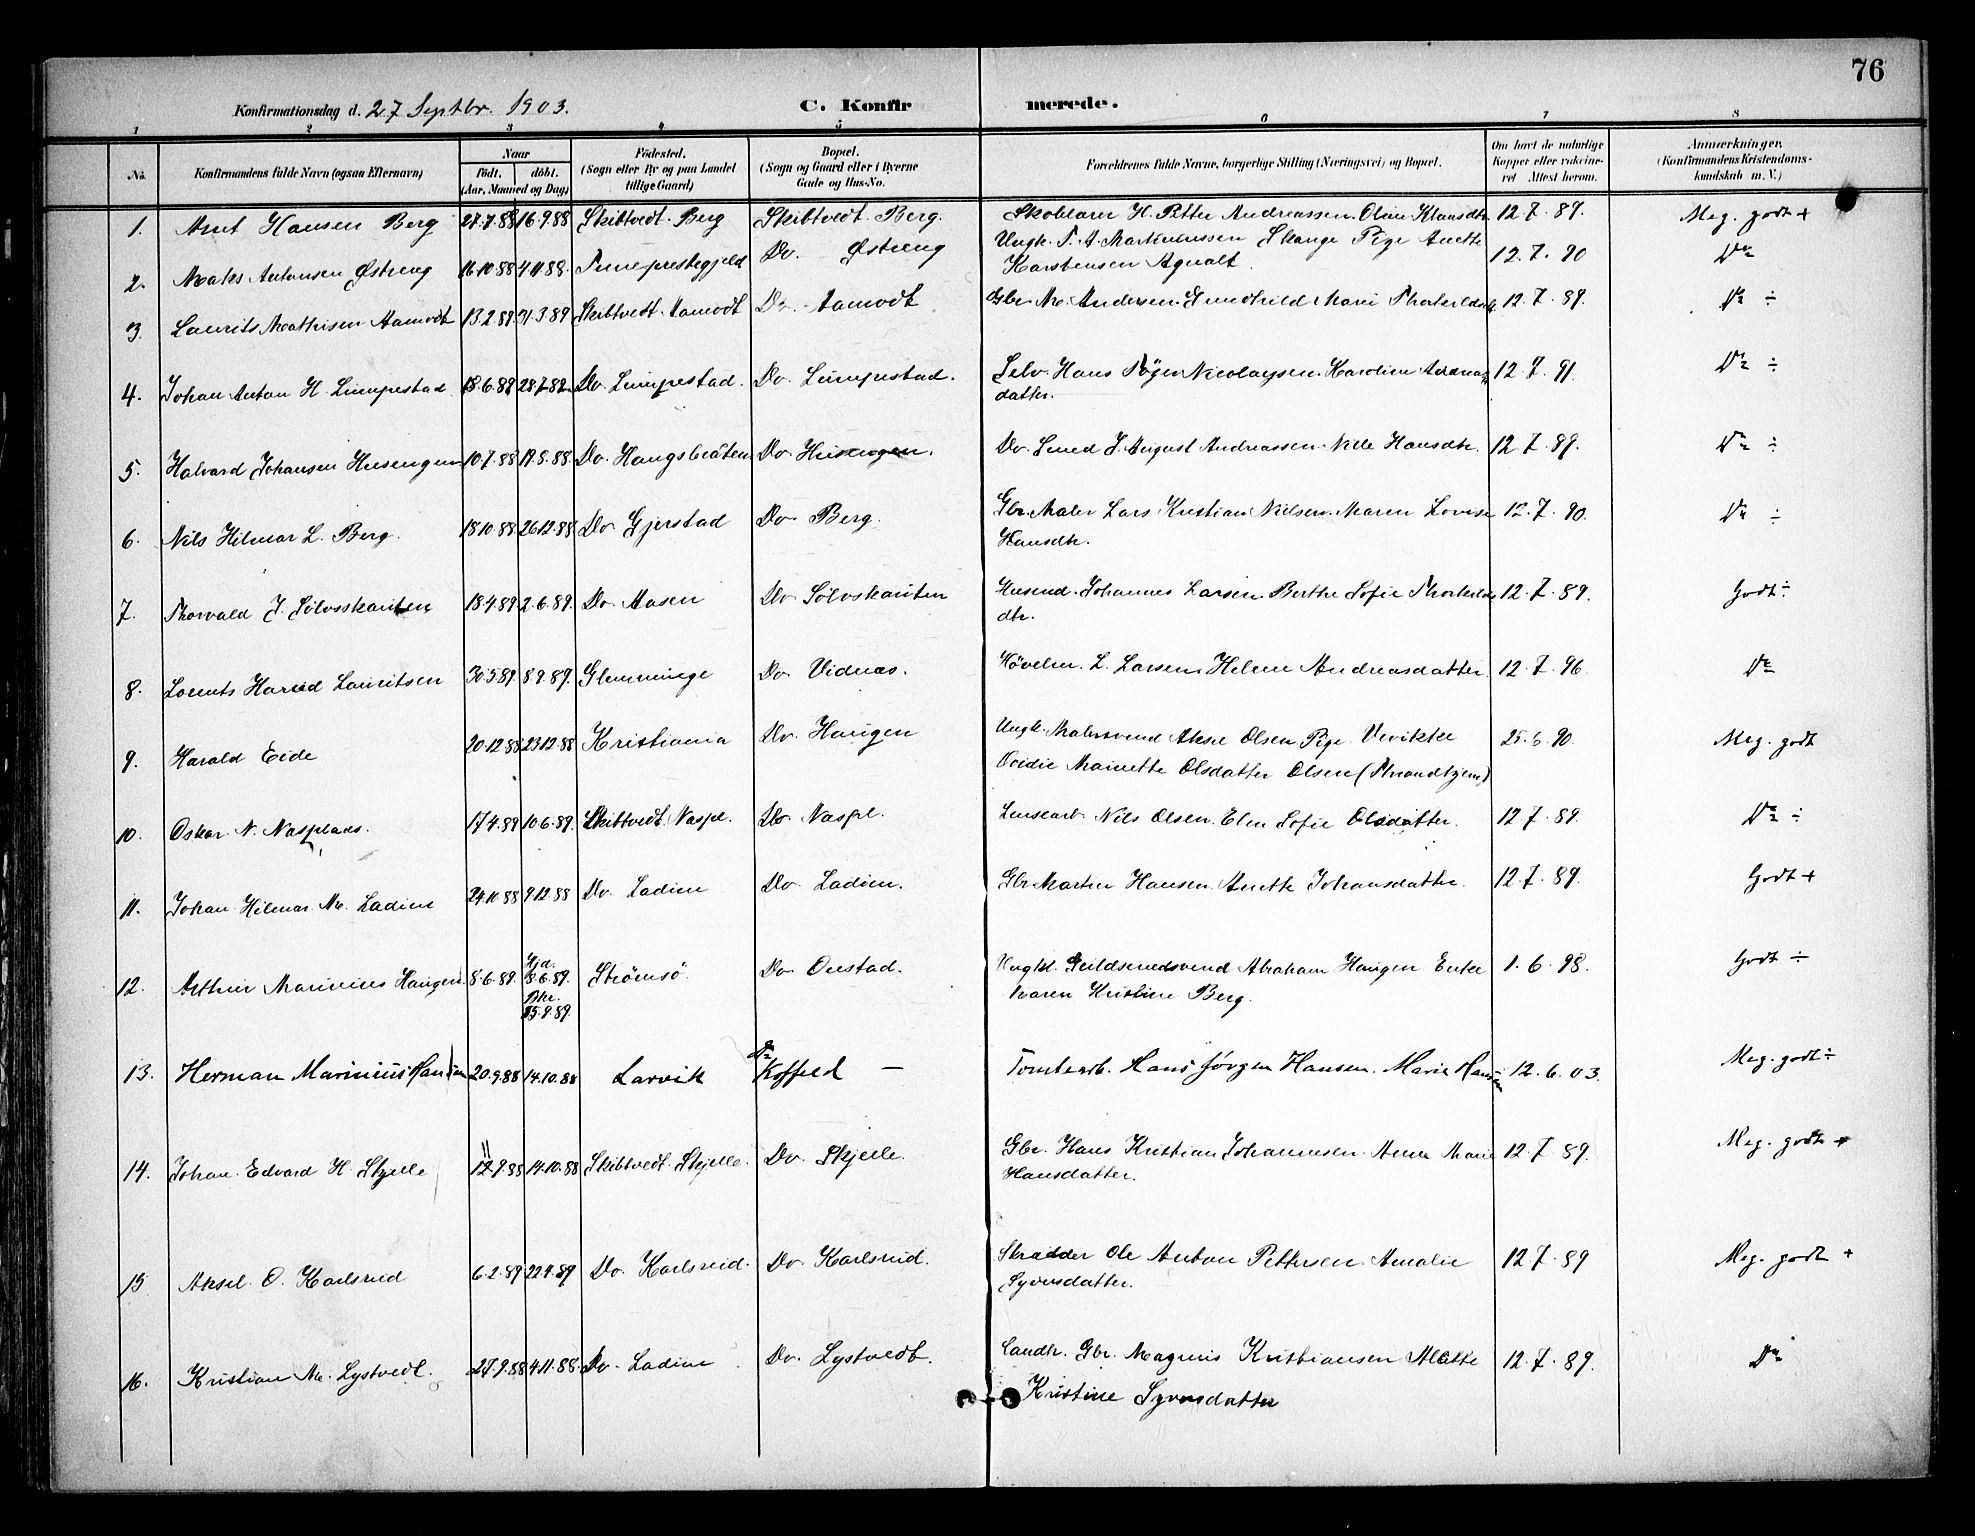 76
Konfirmationsdag d. 27 Septbr. 1903. C. Konfirmerede.
1 2 3 4 5 6 7 8
No. Konfirmandens fulde Navn (ogsaa Efternavn) Naar Födt. döbt. (Aar, Maaned og Dag) Födested. (Sogn eller By og paa Landet tillige Gaard) Bopæl. (Sogn og Gaard eller i Byerne Gade og Hus-No. Forældrenes fulde Navne, borgerlige Stilling (Næringsvei) og Bopæl. Om havt de naturlige Kopper eller vakcineret Attest herom. Anmærkninger, (Konfirmandens Kristendomskundskab m. V.)
1. Arnt Hansen Berg 27.7.88 16.9.88 Skibtvedt. Berg Skibtvedt. Berg. H. Petter Andreassen. 12.7.89. Meg. godt +
2. Antonsen Østreng 16.10.88 4.11.88. Tunepræstegjeld Do. Østreng Ungk. Pige Anette 12.7.90 Do
Karstensen
3. Laurits Mathisen Aamodt 13.2.89 31.3.89 Skibtvedt. Aamodt Do. Aamodt Gbr. M. Andersen. Gundhild Marie 12.7.89. Do ÷
4. Johan Anton H. Limpestad 18.6.89 28.7.89 Do. Limpestad. Do. Limpestad. Selv. Hans Nicolaysen. Karoline 12.7.91. Do ÷
datter.
5. Halvard Johansen Husengen 10.7.88 19.8.88. Do. Do. Husengen. Do. Smed J. August Andreassen. Hansdtr. 12.7.89. Do ÷
6. Nils Hilmar L. Berg. 18.10.88 26.12.88 Do Gjerstad Do. Berg. Gbr. Maler Lars Kristian Nielsen. Maren Lovise 12.7.90. Do ÷
Hansdtr.
7. Thorvald J. Sølvskauten 18.4.89 2.6.89. Do. Aasen Do Sølvskauten Husmd. Johannes Larsen Berthe Sofie 12.7.89. Godt ÷
dtr.
8. Lorents Lauritsen 30.5.89 8.9.89. Glemminge Do. Vidnes. Høvelm. L. Larsen Helene Andreasdatter 12.7.96. Do
9. Harald Eide 20.12.88 23.12.88 Kristiania Do. Haugen Ungk. Malersvend Aksel Olsen Pige. 25.6.90. Meg. godt
Olsdatter Olsen (Strandhjem)
10. Oskar N. Nasplads. 17.4.89 10.6.89. Skibtvedt. Naspl. Do Naspl. Nils Olsen. Elen Sofie Olsdatter. 12.7.89. Do ÷
11. Johan Hilmar M. Ladim 24.10.88 9.12.88 Do. Ladim Do. Ladim. Gbr Martin Hansen. Anette Johansdatter. 12.7.89. Godt +
12. Arthur Marinius Haugen. 8.6.89. Hjd. 8.6.89. 15.9.89. Strömsö Do. Onstad. Ungkl. Guldsmedsvend Abraham Haugen Enke 1.6.98. Godt ÷
Maren Kristine Berg.
13. Herman Marinius Hansen 20.9.88 14.10.88 Larvik Do Koffeld — Tomtearb. Hans Jørgen Hansen. Marie Hansen 12.6.03. Meg. godt ÷
14. Johan Edvard H. Skjelle 12.9.88 11 14.10.88 Skibtvedt. Skjelle. Do. Skjelle. Gbr. Hans Kristian Johannesen. Anna Marie 12.7.89. Meg. godt +
Hansdatter.
15 Aksel O. Karlsrud 6.2.89 22.4.89 Do. Karlsrud. Do. Karlsrud. Skrædder Ole Anton Pettersen. Amalie 12.7.89 Meg. godt +
Syversdatter.
16. Kristian M. Lystvedt. 27.9.88 4.11.88. Do. Ladim Do. Lystvedt. Landh. Gbr. Magnus Kristiansen 12.7.89. Do
Kristine Syversdatter